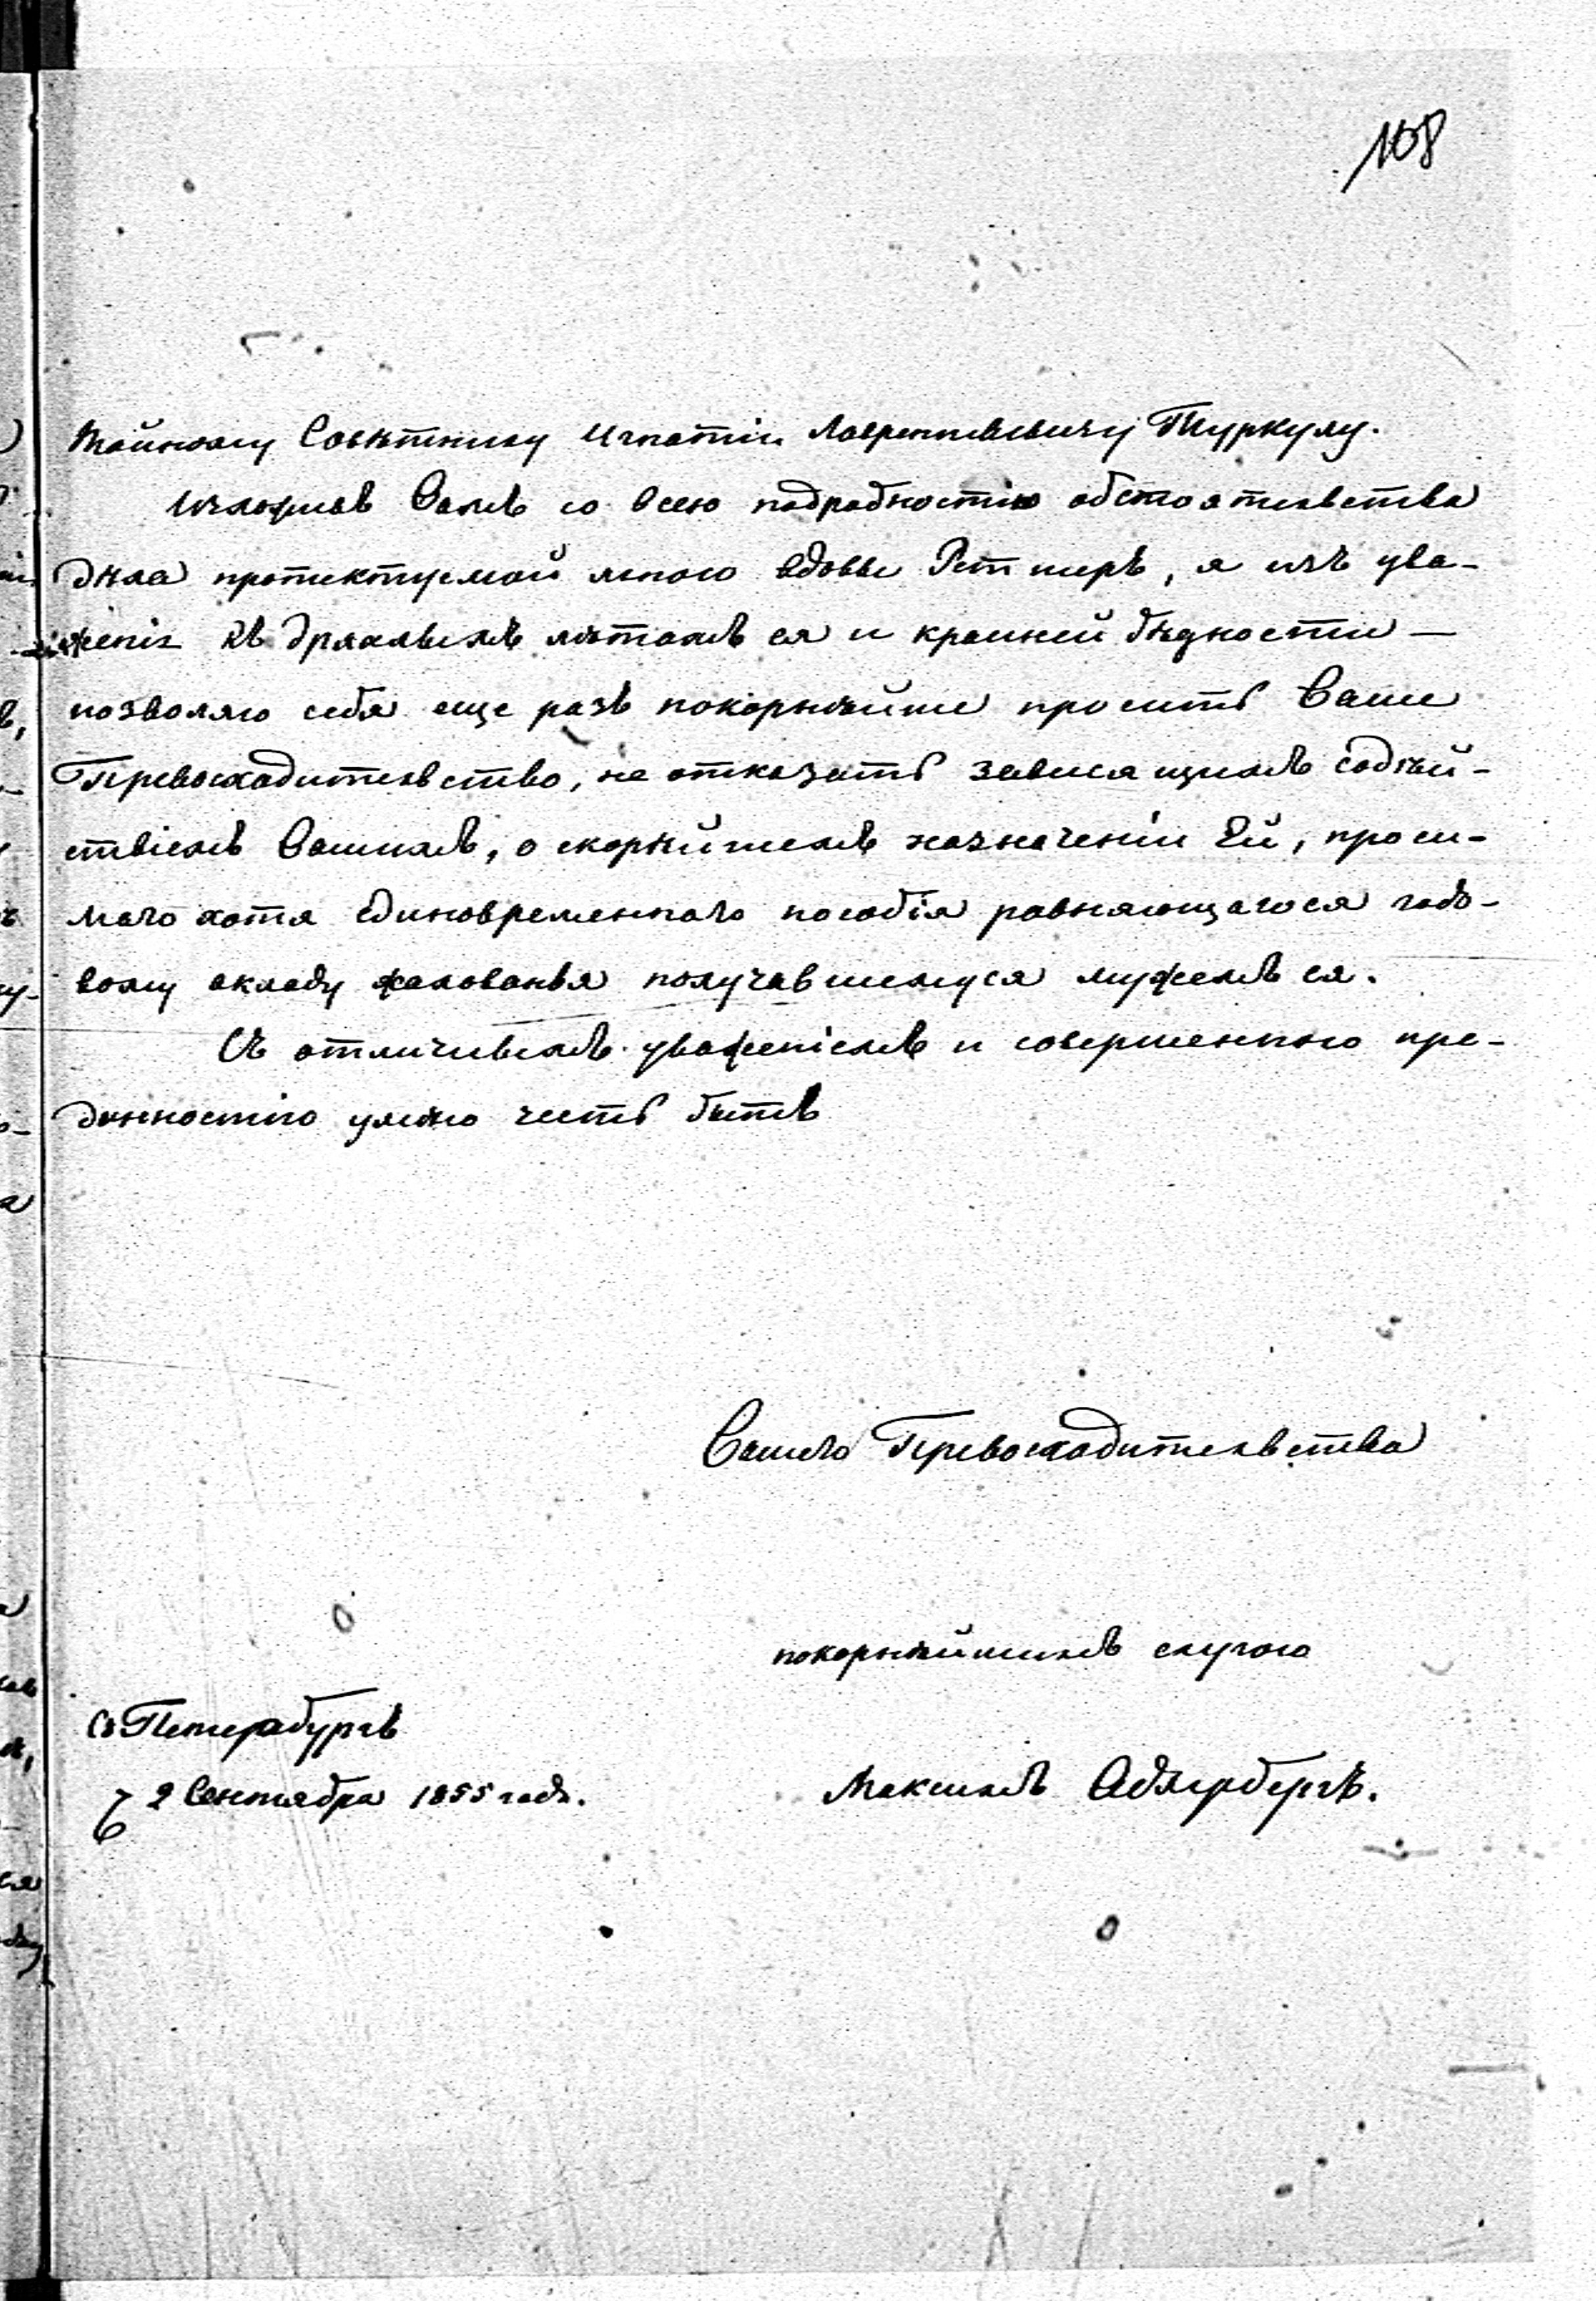 108
Тайному Совѣтнику Игнатію Лаврентьевичу Туркулу.
Изложивъ Вамъ со всею подробностію обстоятельства
дѣла протектуемой мною вдовы Ретгиръ, я изъ ува-
женія къ дряхлымъ лѣтамъ ея и крайней бѣдности —
позволяю себя еще разъ покорнѣйше просить Ваше
Превосходительство, не отказать зависящимъ содѣй-
ствіемъ Вашимъ, о скорѣйшемъ назначеніи Ей, проси-
маго хотя единовременнаго пособія равняющагося годо-
вому окладу жалованья получавшемуся мужемъ ея.
Съ отличнымъ уваженіемъ и совершенною пре-
данностію имѣю честь быть
Вашего Превосходительства
покорнѣйшимъ слугою
С Петербургъ
2 Сентября 1855 года.
Максимъ Адлербергъ.